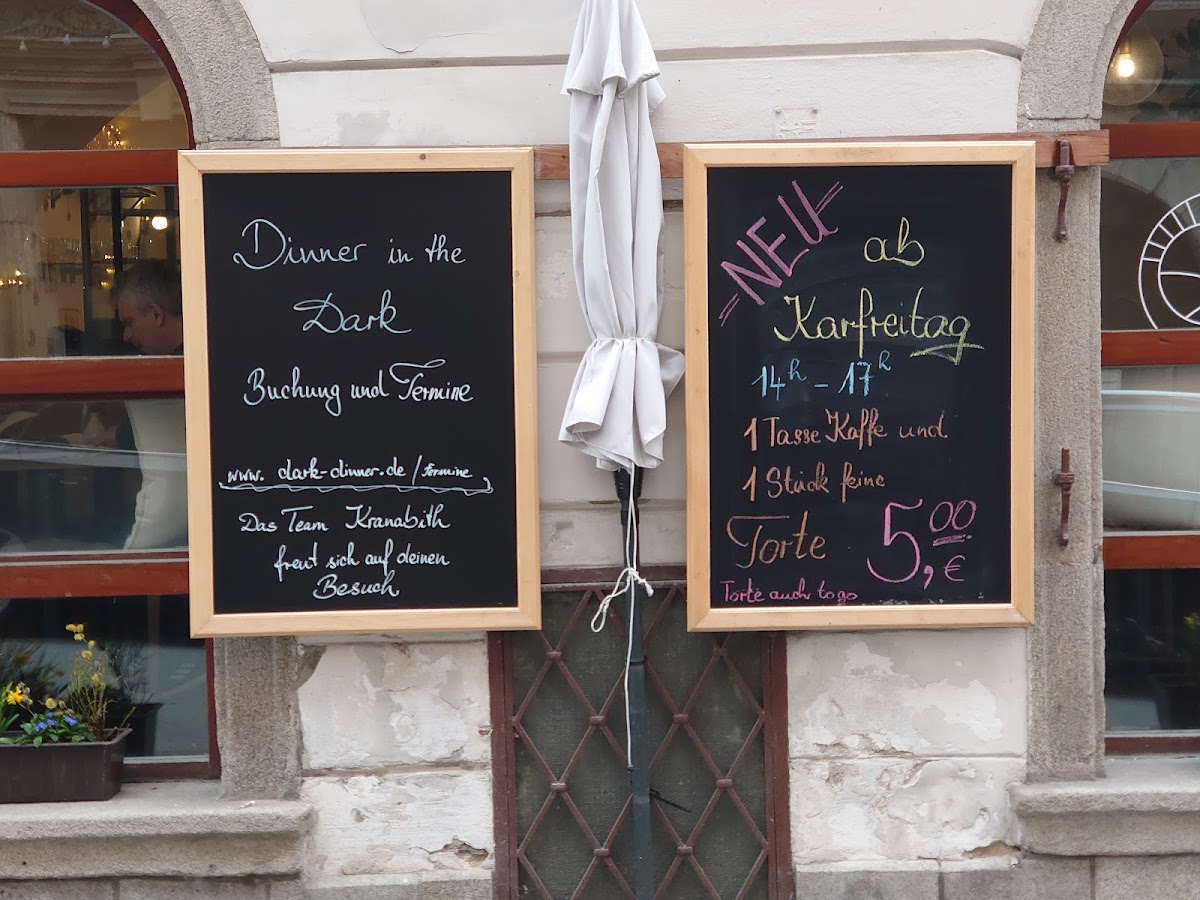 Dinner in the
Dark
Buchung und Termine
www.dark-dinner.de/termine
Das Team Kranabith
freut sich auf deinen
Besuch
NEU
ab
Karfreitag
14h - 17h
1 Tasse Kaffe und
1 Stück feine
Torte 5,00 €
Torte auch togo